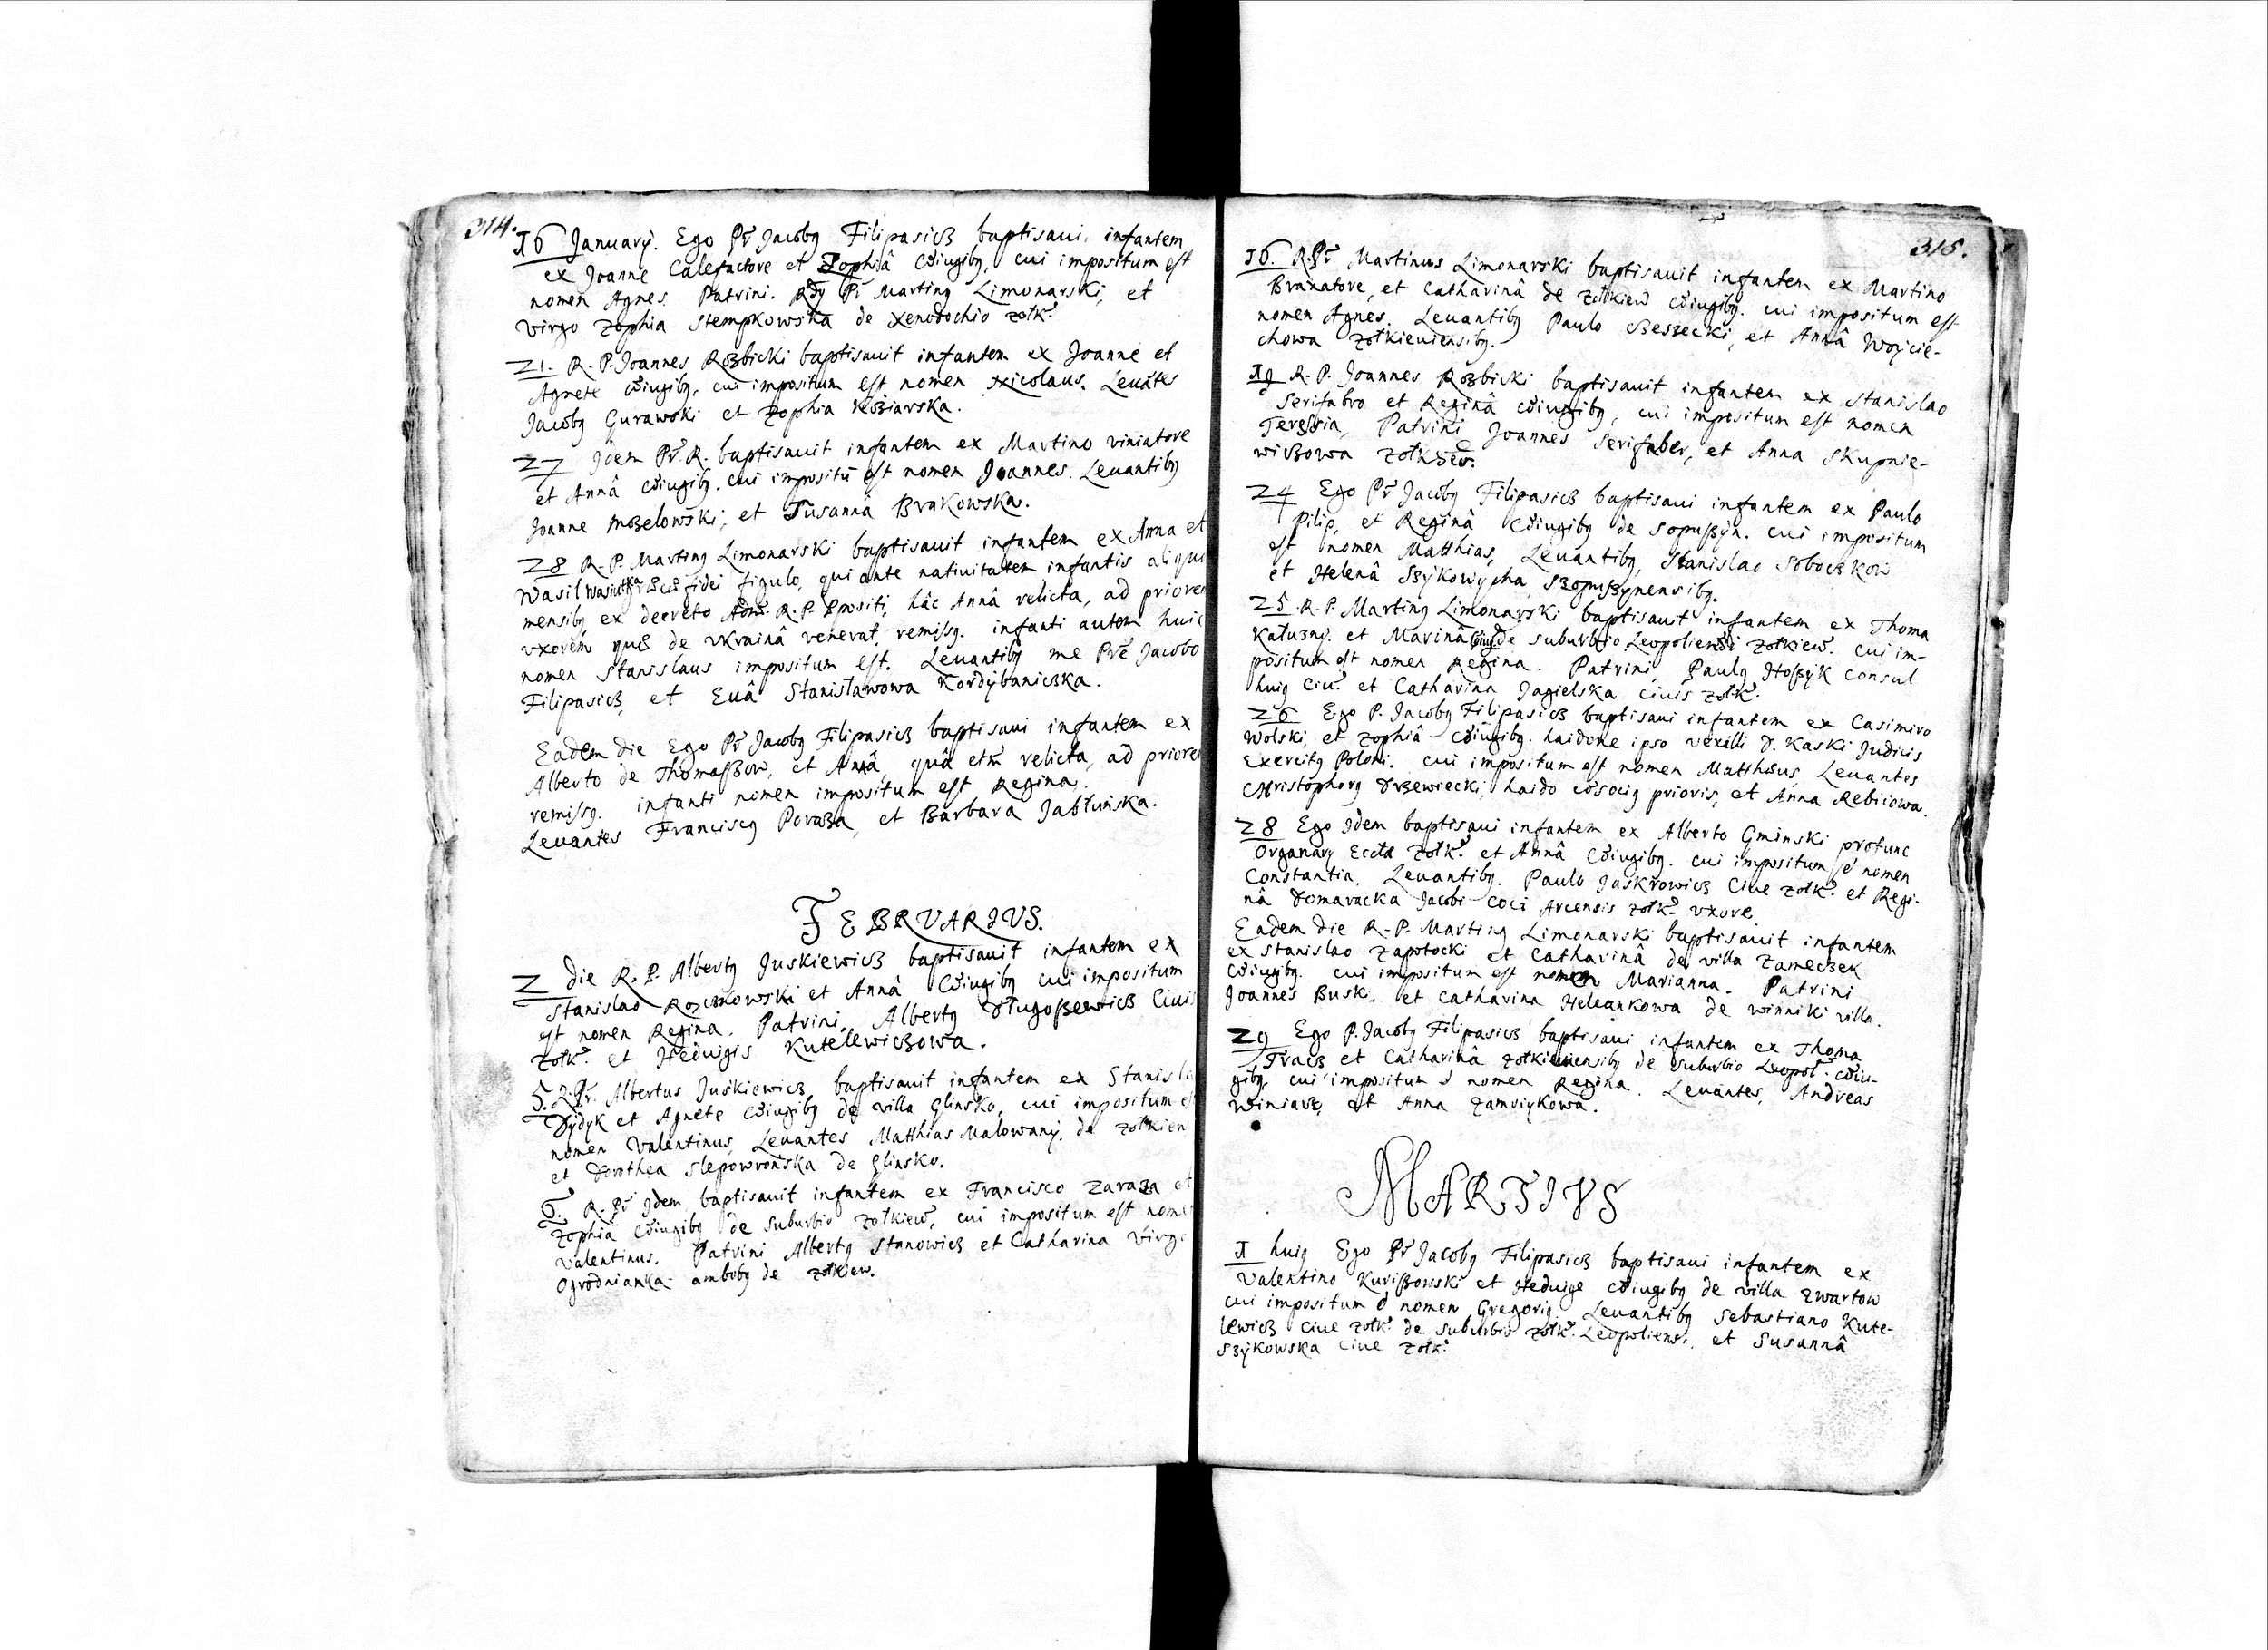 314.
16 Januarÿ. Ego Pr Jacobq Filipasicz baptisaui infantem
ex Joanne Calefactore et Zophiâ Cōiugibq, cui impositum est
nomen Agnes. Patrini. Rdq Pr Martinq Limonarski, et
virgo Zophia Stempkowska de Xenodochio Zołk.
21. R. P. Joannes Rozbicki baptisauit infantem ex Joanne et
Agnete Cōiugibq, cui impositum est nomen Nicolaus. Leuātes
Jacobq Gurawski et Zophia Koziarska.
27 Idem Pr. R. baptisauit infantem ex Martino viniatore
et Annâ Cōiugibq. cui impositū est nomen Joannes. Leuantibq
Joanne Mozelowski, et Susannâ Brakowska.
28 R. P. Martinq Limonarski baptisauit infantem ex Anna et
Wasil fidei figulo, qui ante natiuitatem infantis aliqu
mensibq ex decreto Adm. R. P. Ppositi, hâc Annâ relicta, ad priorem
vxorem quæ de Vkrainâ venerat, remissq. infanti autem huic
nomen Stanislaus impositum est. Leuantibq me Prē Jacobo
Filipasicz, et Euâ Stanisławowa Kordÿbaniczka.
Eadem die Ego Pr Jacobq Filipasicz baptisaui infantem ex
Alberto de Thomaszow, et Annâ, quâ etm relicta, ad priore
remissq. infanti nomen impositum est Regina.
Leuantes Franciscq Poraza, et Barbara Jabłuńska.
FEBRVARIVS.
2 die R. P. Albertq Juskiewicz baptisauit infantem ex
Stanislao et Annâ Cōiugibq cui impositum
est nomen Regina. Patrini, Albertq Długoszewicz Ciuis
Zołk. et Heduigis Kutelewiczowa.
5. Pr. Albertus Juskiewicz baptisauit infantem ex Stanisla
Dÿdÿk et Agnete Cōiugibq de villa Glinsko, cui impositum es
nomen Valentinus, Leuantes Matthias Malowanÿ de Zołkiew
et Dorothea Slepowrońska de Glinsko.
6. R. Pr Idem baptisauit infantem ex Francisco Zaraza et
Zophiâ Cōiugibq de suburbio Zołkiew, cui impositum est nome
Valentinus. Patrini Albertq Stanowicz et Catharina Virgo
Ogrodnianka ambobq de Zołkiew.
315.
16. R. Pr Martinus Limonarski baptisauit infantem ex Martino
Braxatore, et Catharinâ de Zołkiew Cōiugibq. cui impositum est
nomen Agnes. Leuantibq Paulo Czeszecki, et Annâ Woÿcie-
chowa Zołkieuiensibq.
19 R. P. Joannes Rozbicki baptisauit infantem ex Stanislao
Serifabro et Reginâ Cōiugibq, cui impositum est nomen
Teressia, Patrini Joannes Serifaber, et Anna Skupnie-
wiczowa
24 Ego Pr Jacobq Filipasicz baptisaui infantem ex Paulo
Pilip, et Reginâ Cōiugibq de Sopuszÿn. cui impositum
est nomen Matthias, Leuantibq, Stanislao Soboczkow
et Helenâ Szÿkowÿcha, Szopuszynensibq.
25 R. P. Martinq Limonarski baptisauit infantem ex Thoma
Kałuznÿ et Marinâ Cōiug de suburbio Leopoliensi Zołkiew. cui im-
positum est nomen Regina. Patrini, Paulq Hoszÿk Consul
huiq Ciu. et Catharina Jagielska Ciuis Zołk.
26 Ego P. Jacobq Filipasicz baptisaui infantem ex Casimiro
Wolski, et Zophiâ Cōiugibq. haidone ipso vexilli D. Kaski Judicis
Exercitq Poloni. cui impositum est nomen Matthæus, Leuantes
Christophorq Drzewiecki, haido cōsociq prioris, et Anna Rebiiowa.
28 Ego Idem baptisaui infantem ex Alberto Gminski protunc
Organarÿ Eccłæ Zołk. et Annâ Cōiugibq. cui impositum ē nomen
Constantia, Leuantibq. Paulo Jaskrowicz Ciue Zołk. et Regi-
nâ Domaracka Jacobi Coci Arcensis Zołk. vxore
Eadem die R. P. Martinq Limonarski baptisauit infantem
ex Stanislao Zapotocki et Catharinâ de villa Zameczek
Cōiugibq. cui impositum est nomen Marianna. Patrini
Joannes Busk. et Catharina Heleankowa de Winniki villa.
29 Ego P. Jacobq Filipasicz baptisaui infantem ex Thoma
Tracz et Catharinâ Zołkieuiensibq de suburbio Leopol. Cōiu-
gibq, cui impositum ē nomen Regina. Leuantes, Andreas
Winiarz, et Anna Zamoiÿkowa.
MARTIVS
1 huiq Ego Pr Jacobq Filipasicz baptisaui infantem ex
Valentino Kuriszowski et Heduige Cōiugibq de villa Zwartow
cui impositum ē nomen Gregoriq. Leuantibq Sebastiano Kute-
lewicz Ciue Zołk. de suburbio Zołk. Leopoliens. et Susannâ
Szÿkowska Ciue Zołk.